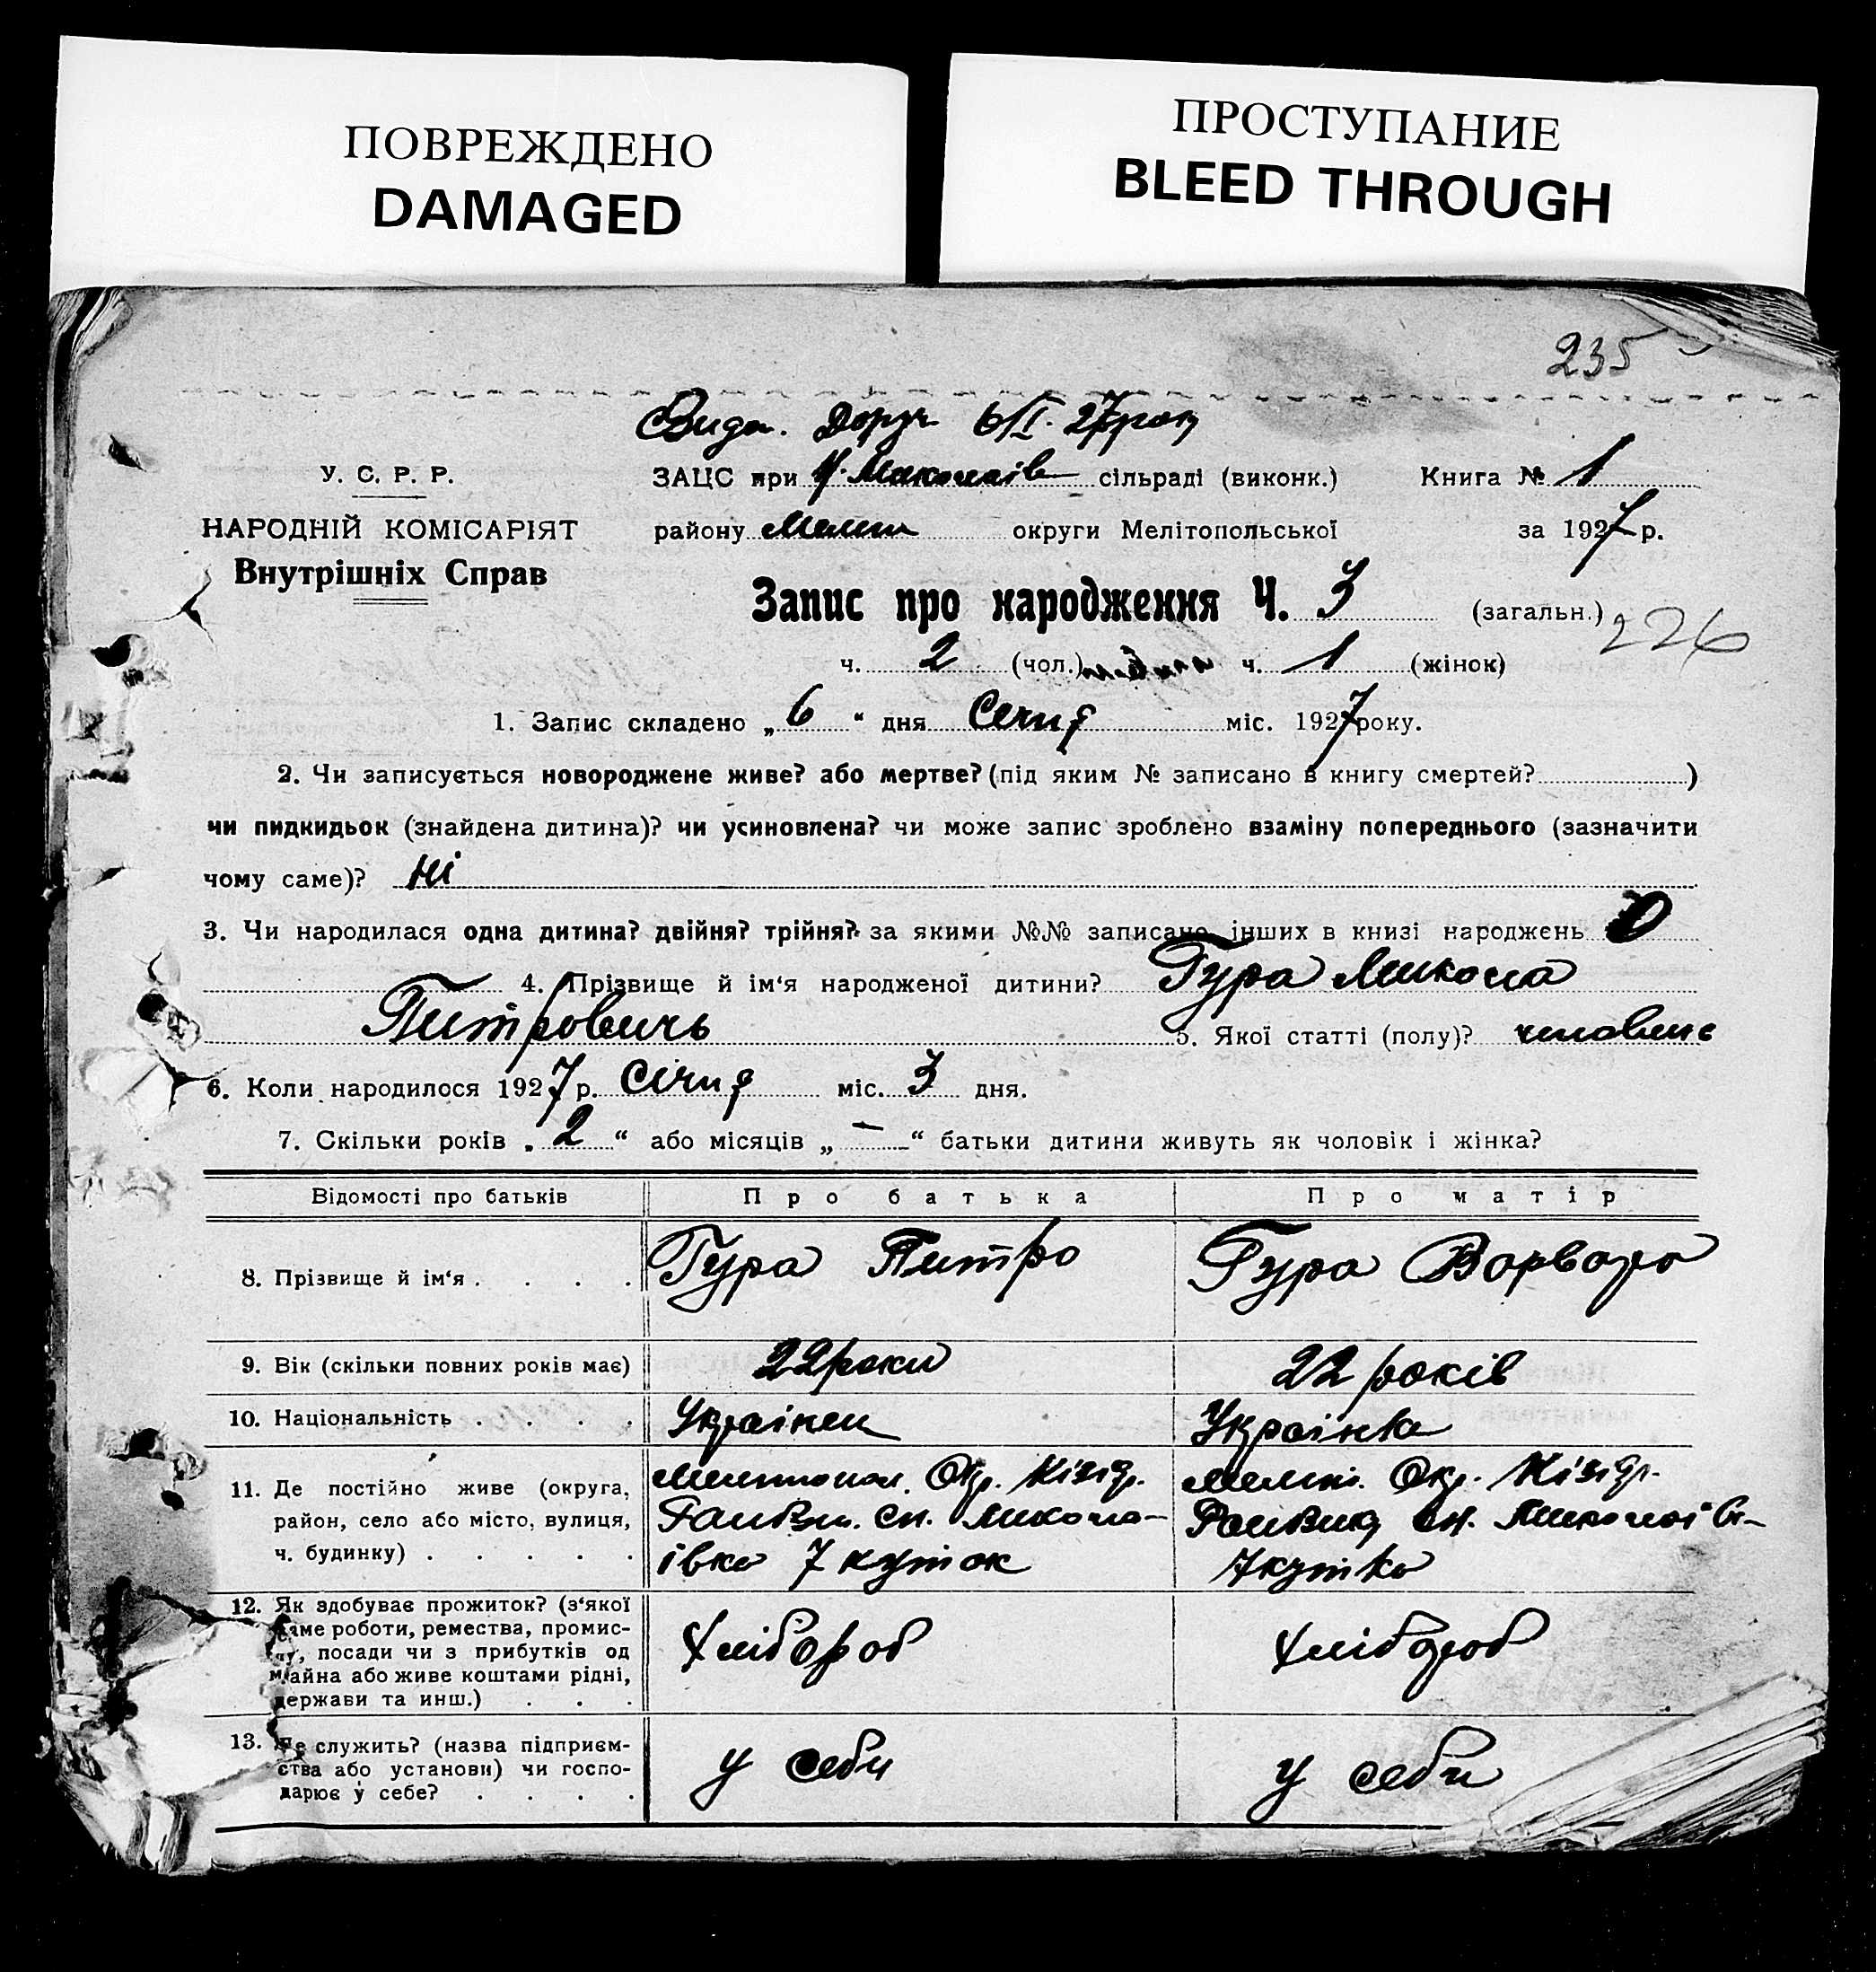 ПОВРЕЖДЕНО
DAMAGED
ПРОСТУПАНИЕ
BLEED THROUGH
235
Вида. Доруч 6/I. 27 року
У. С. Р. Р.
ЗАЦС при Н. Миколаїв сільраді (виконк.) Книга № 1
НАРОДНІЙ КОМІСАРІЯТ
району Меліт округи Мелітопольської за 1927 р.
Внутрішніх Справ
Запис про народження Ч. 3 (загальн.) 226
ч. 2 (чол.) ч. 1 (жінок)
1. Запис складено „ 6 “ дня Січня міс. 1927 року.
2. Чи записується новороджене живе? або мертве? (під яким № записано в книгу смертей? )
чи пидкидьок (знайдена дитина)? чи усиновлена? чи може запис зроблено взаміну попереднього (зазначити
чому саме)? Ні
3. Чи народилася одна дитина? двійня? трійня? за якими №№ записано інших в книзі народжень 0
4. Прізвище й ім‘я народженої дитини? Гура Микола
Питровичь 5. Якої статті (полу)? чоловиче
6. Коли народилося 1927 р. Січня міс. 3 дня.
7. Скільки років „ 2 “ або місяців „ — “ батьки дитини живуть як чоловік і жінка?
Відомості про батьків Про батька Про матір
8. Прізвище й ім‘я . . . . Гура Питро Гура Варвара
9. Вік (скільки повних років має) 22 роки 22 років
10. Національність . . . . Українец Українка
11. Де постійно живе (округа,
район, село або місто, вулиця,
ч. будинку) . . . . .
Мелітопол. Окр. Кізіяр.
с. Микола-
ївка 7 куток
Меліт. Окр. Кізіяр.
с. Миколаїв-
7 кутка
12. Як здобуває прожиток? (з‘якої
саме роботи, ремества, промис-
лу, посади чи з прибутків од
майна або живе коштами рідні,
держави та инш.) . . .
Хлібороб Хлібороб
13. Де служить? (назва підприєм-
ства або установи) чи госпо-
дарює у себе? . . . .
у себи у себи